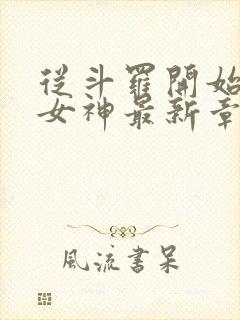 從斗羅開始
女神最新章
風流書呆